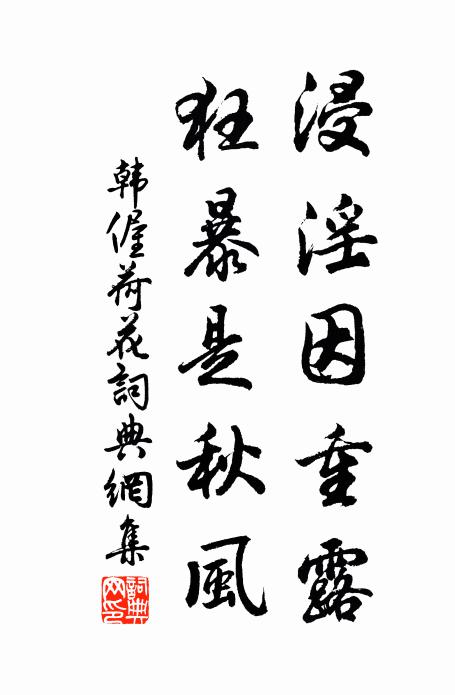 浸淫因重露
狂暴是秋風
韩偓荷花詞典網集
詞典网印